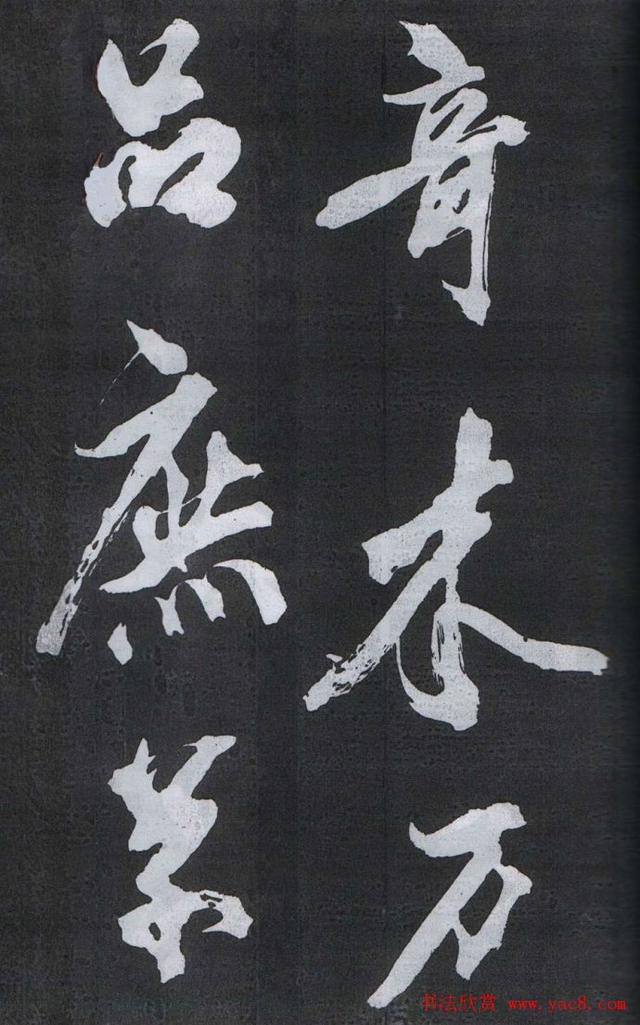 竒木万
品庶草
书法欣赏 www.yac8.com